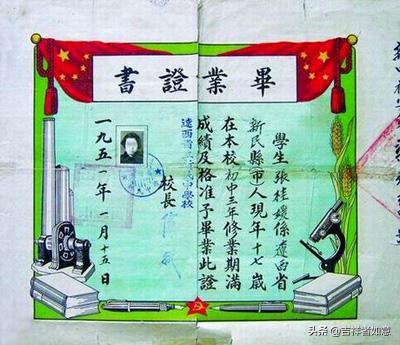 畢業證書
學生張桂媛係遼西省
新民縣市人現年十七歲
在本校初中三年修業期滿
成績及格准予畢業此證
遼西省民中學校
校長
一九五一年一月十五日
头条 @吉祥省如意